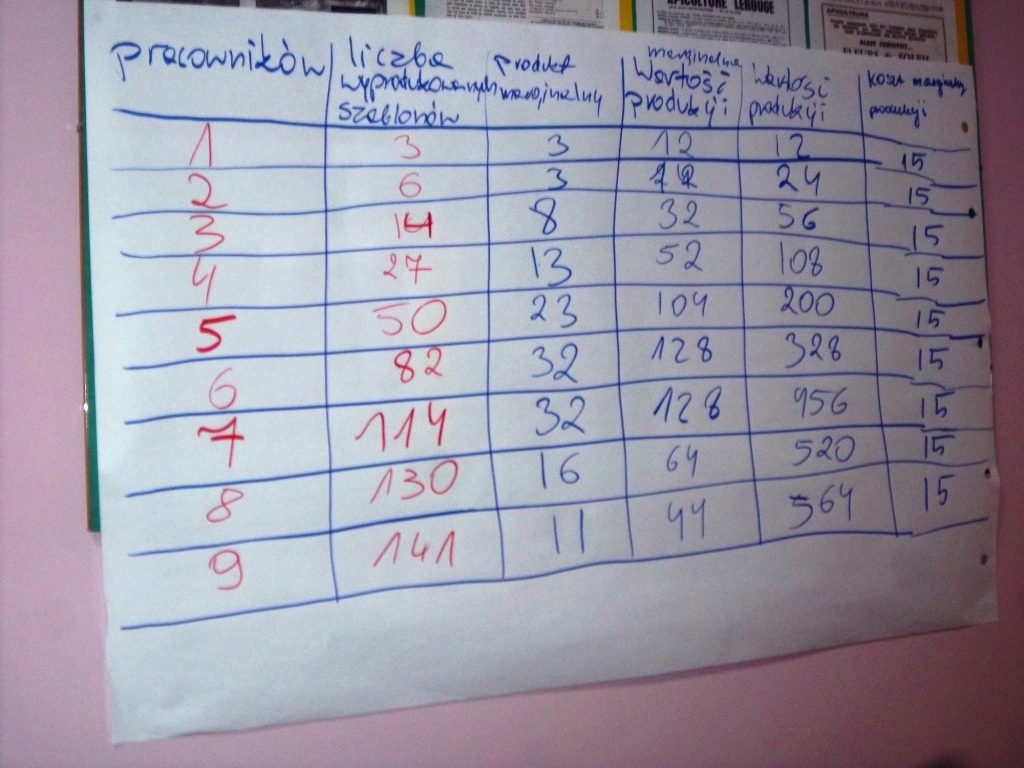 APICULTURE LEROUGE
APICULTEURS
FLEURS & SOLEIL
pracowników liczba wyprodukowanych szablonów produkt marginalny marginalna wartość produkcji wartość produkcji koszt marginalny produkcji
1 3 3 12 12 15
2 6 3 12 24 15
3 14 8 32 56 15
4 27 13 52 108 15
5 50 23 104 200 15
6 82 32 128 328 15
7 114 32 128 956 15
8 130 16 64 520 15
9 141 11 44 564 15